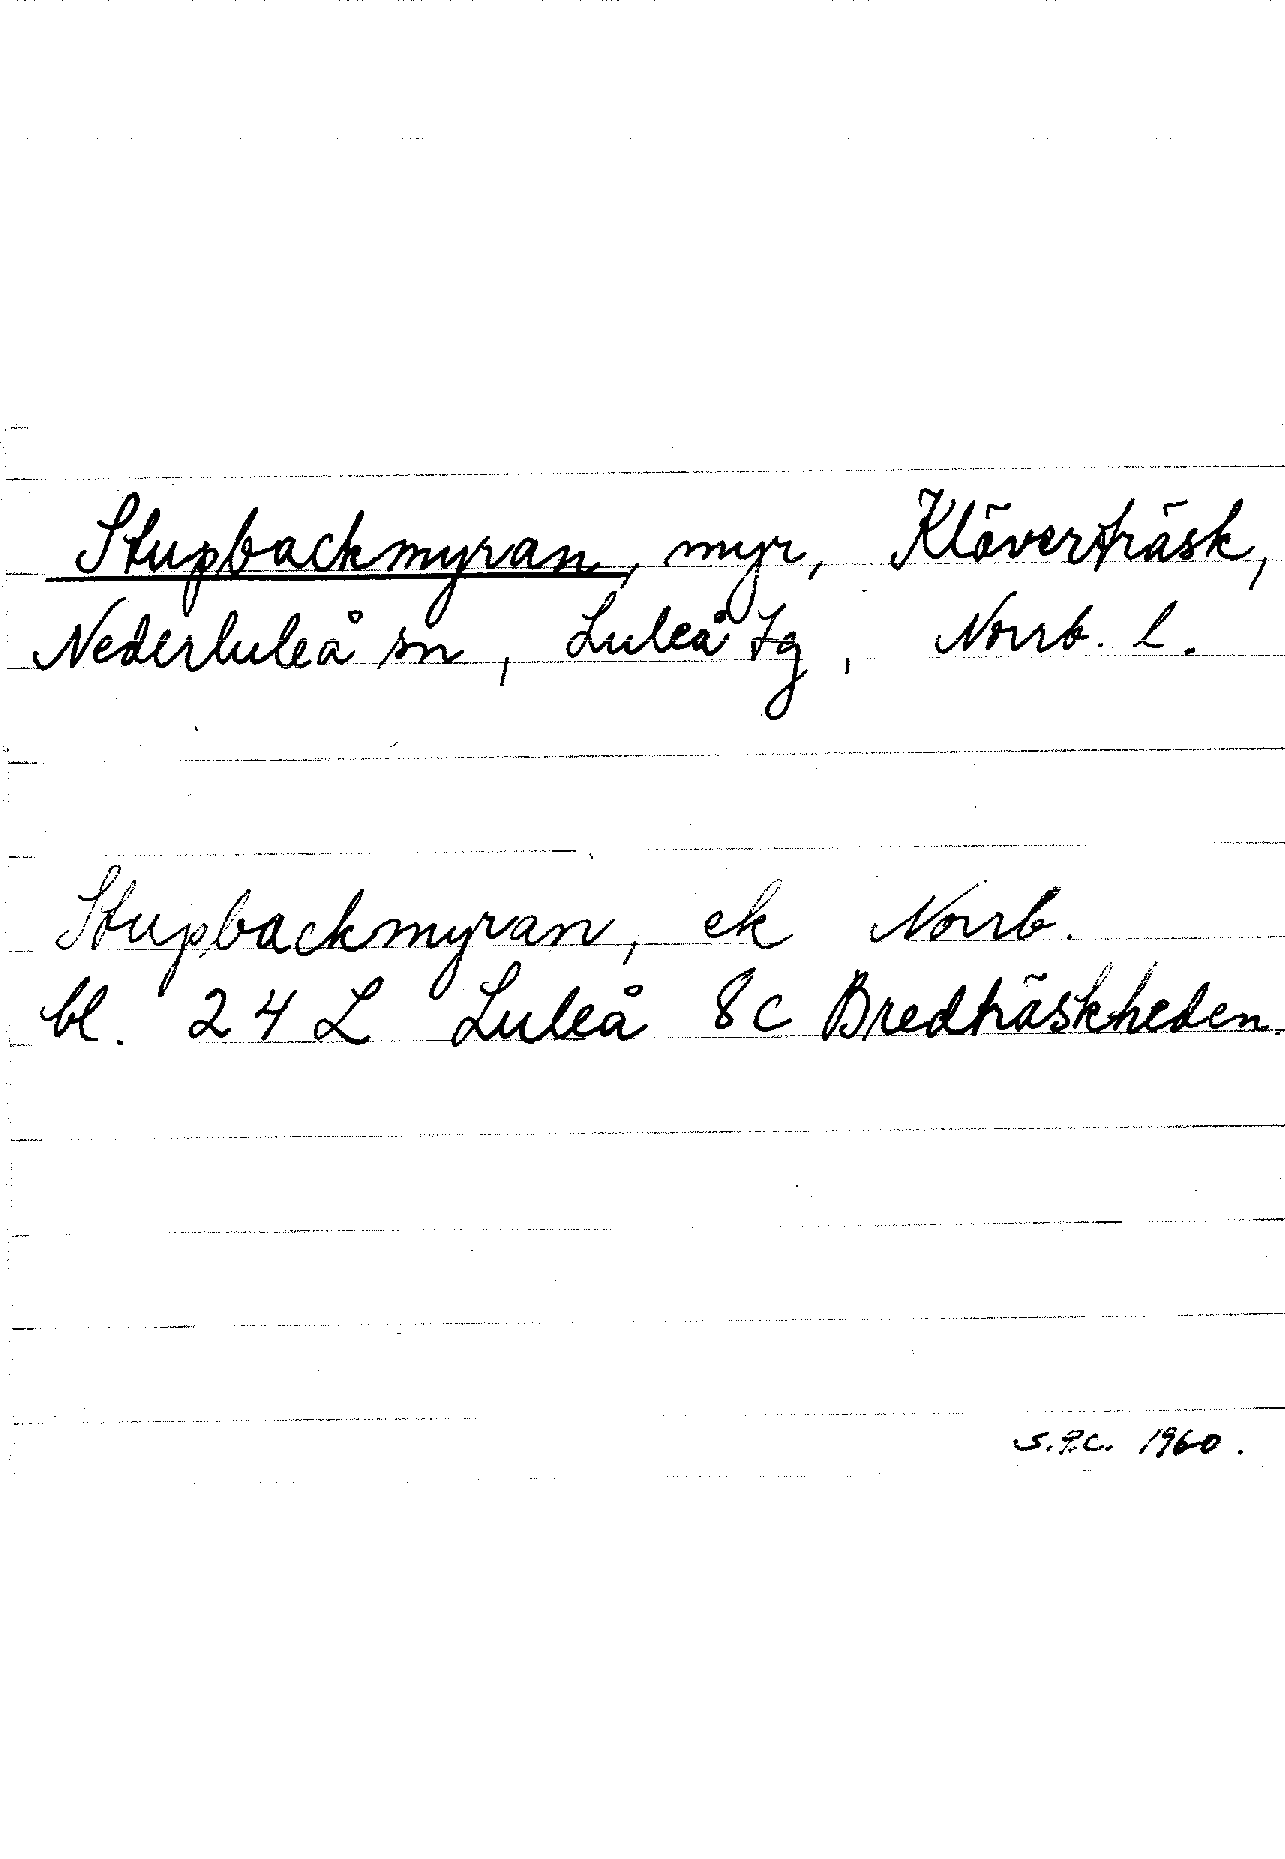 Stupbackmyran, myr, Klöverträsk,
Nederluleå sn, Luleå tg, Norrb. l.
Stupbackmyran, ek Norrb.
bl. 24 L Luleå 8c Bredträskheden.
1960.